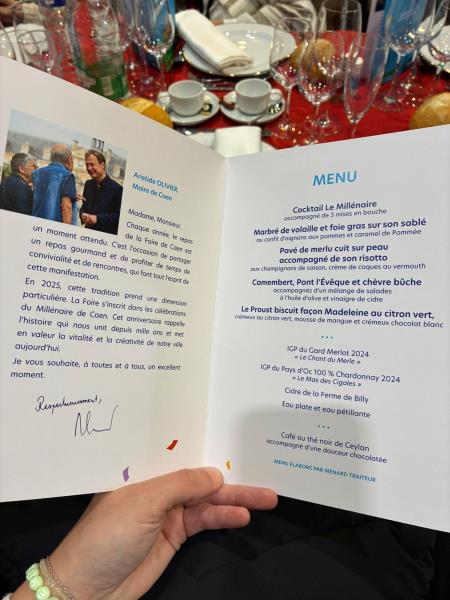 Aristide OLIVIER,
Maire de Caen
Madame, Monsieur,
Chaque année, le repas
de la Foire de Caen est
un moment attendu. C'est l'occasion de partager
un repas gourmand et de profiter de temps de
convivialité et de rencontres, qui font tout l'esprit de
cette manifestation.
En 2025, cette tradition prend une dimension
particulière. La Foire s'inscrit dans les célébrations
du Millénaire de Caen. Cet anniversaire rappelle
l'histoire qui nous unit depuis mille ans et met
en valeur la vitalité et la créativité de notre ville
aujourd'hui.
Je vous souhaite, à toutes et à tous, un excellent
moment.
Respectueusement,
MENU
Cocktail Le Millénaire
accompagné de 3 mises en bouche
Marbré de volaille et foie gras sur son sablé
au confit d'oignons aux pommes et caramel de Pommée
Pavé de merlu cuit sur peau
accompagné de son risotto
aux champignons de saison, crème de coques au vermouth
Camembert, Pont l'Évêque et chèvre bûche
accompagnés d'un mélange de salades
à l'huile d'olive et vinaigre de cidre
Le Proust biscuit façon Madeleine au citron vert,
crémeux au citron vert, mousse de mangue et crémeux chocolat blanc
...
IGP du Gard Merlot 2024
« Le Chant du Merle »
IGP du Pays d'Oc 100 % Chardonnay 2024
« Le Mas des Cigales »
Cidre de la Ferme de Billy
Eau plate et eau pétillante
...
Café ou thé noir de Ceylan
accompagné d'une douceur chocolatée
MENU ÉLABORÉ PAR MÉNARD TRAITEUR